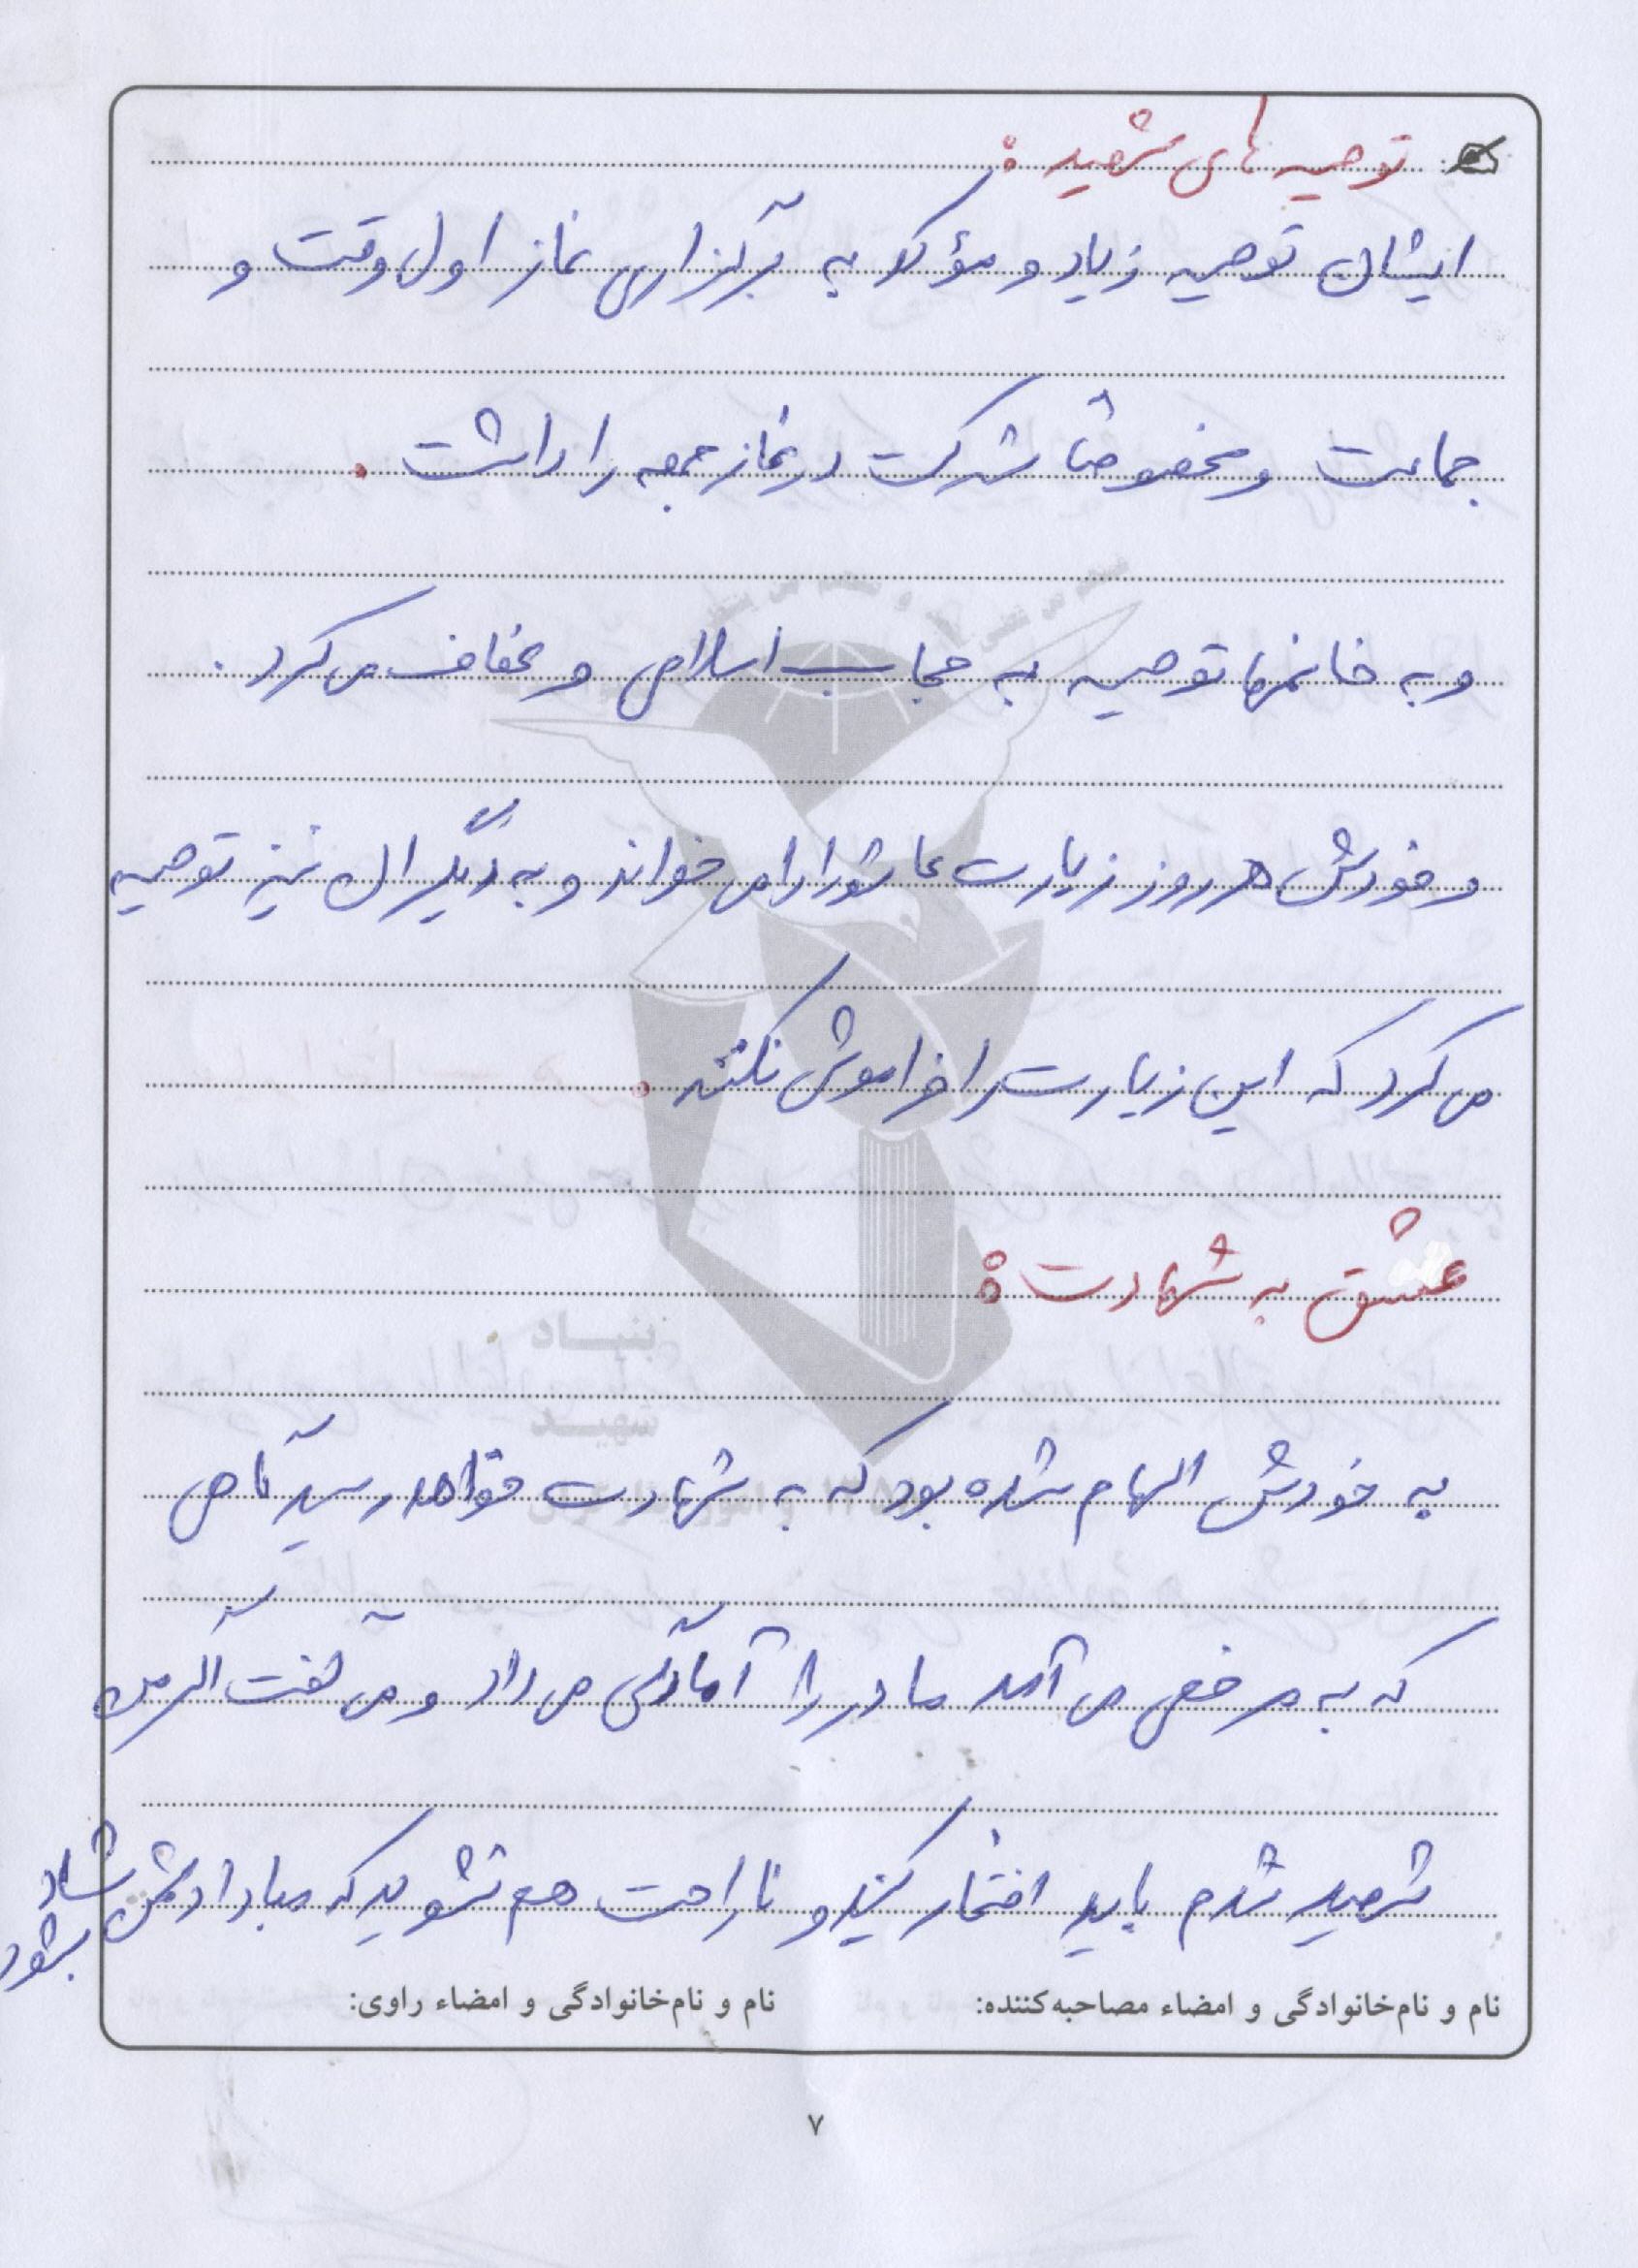 توصیه های شهید:
ایشان توصیه زیاد و مؤکد به برگزاری نماز اول وقت و
جماعت و مخصوصاً شرکت در نماز جمعه را داشت.
و به خانمها توصیه به حجاب اسلامی و عفاف می کرد.
و خودش هر روز زیارت عاشورا را می خواند و به دیگران نیز توصیه
می کرد که این زیارت را فراموش نکنند.
عشق به شهادت:
بنیاد
شهید
به خودش الهام شده بود که به شهادت خواهد رسید
که به مرخصی می آمد مادر را آمادگی می داد و می گفت اگر من
شهید شدم باید افتخار کنید و ناراحت هم نشوید که مبادا دشمن شاد
بشود
نام و نام خانوادگی و امضاء مصاحبه کننده: نام و نام خانوادگی و امضاء راوی:
۷